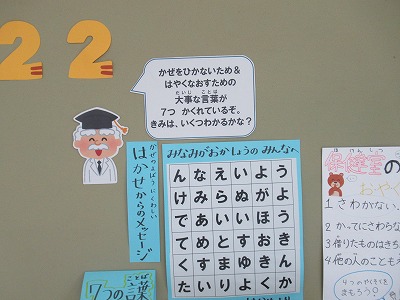 22
かぜをひかないため&
はやくなおすための
大事な言葉が
7つ かくれているぞ。
きみは、いくつわかるかな?
かぜのよぼうにくわしい
はかせからのメッセージ
みなみがおかしょうのみんなへ
んなえいよう
けみらぬがよ
んあいがほう
てめとすおき
くすまゆきん
たいりよよく
7つの言葉
保健室の
おやく
1 さわがない。
2 かってにさわらな
3 借りたものはきち
4 他の人のことも考
4つのやくそくを
まもろう